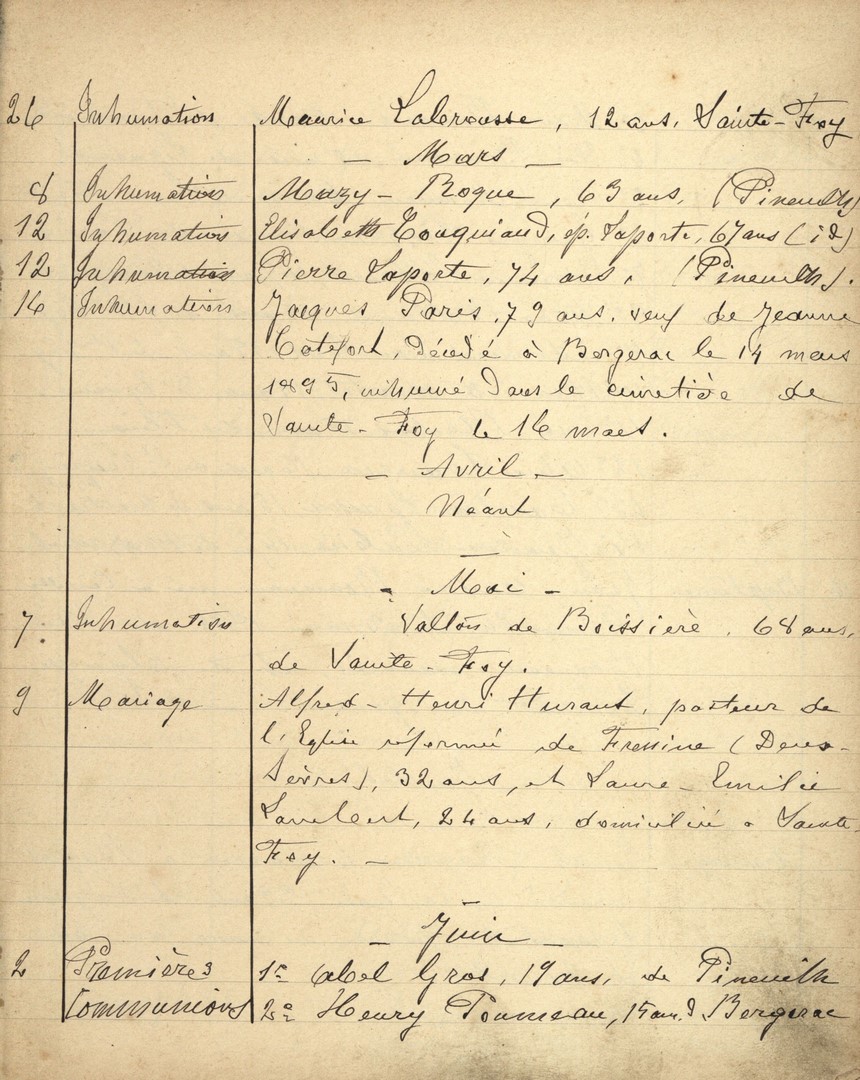 26 Inhumation Maurice Labrousse, 12 ans, Sainte-Foy
— Mars —
8 Inhumation Mazy-Roque, 63 ans, (Pineuilh)
12 Inhumation Elisabeth Couquiaud, ép. Laporte, 67 ans (id)
12 Inhumation Pierre Laporte, 74 ans, (Pineuilh).
16 Inhumation Jacques Paris, 79 ans, veuf de Jeanne
Catefort, Décédé à Bergerac le 14 mars
1895, inhumé dans le cimetière de
Sainte-Foy le 16 mars.
— Avril —
Néant
— Mai —
7 Inhumation Vallon de Boissière, 68 ans,
de Sainte-Foy.
9 Mariage Alfred-Henri Hurant, pasteur de
l'Eglise réformée de Fressine (Deux-
Sèvres), 32 ans, et Laure-Emilie
Lambert, 24 ans, domiciliée à Sainte-
Foy. —
— Juin —
2 Premières 1º Abel Gros, 19 ans, de Pineuilh
Communions 2º Henry Pommeau, 15 ans, d Bergerac